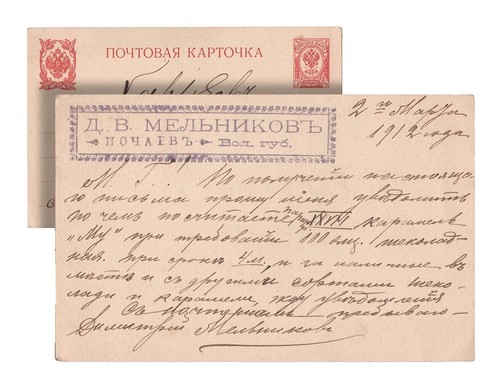 ПОЧТОВАЯ КАРТОЧКА
Д. В. МЕЛЬНИКОВЪ
ПОЧАЕВЪ Вол. губ.
2 го Марта
1912 года
М. Г.! По получении настояща-
го письма прошу меня уведомить
по чем посчитаете XXVI карамель
"Му" при требовании 100 шоколад-
ная. при сроке 4 м. и за наличные в
месте и с другими сортами шоко-
лада и карамели, жду уведомления
С почтением пребываю
Димитрий Мельниковъ